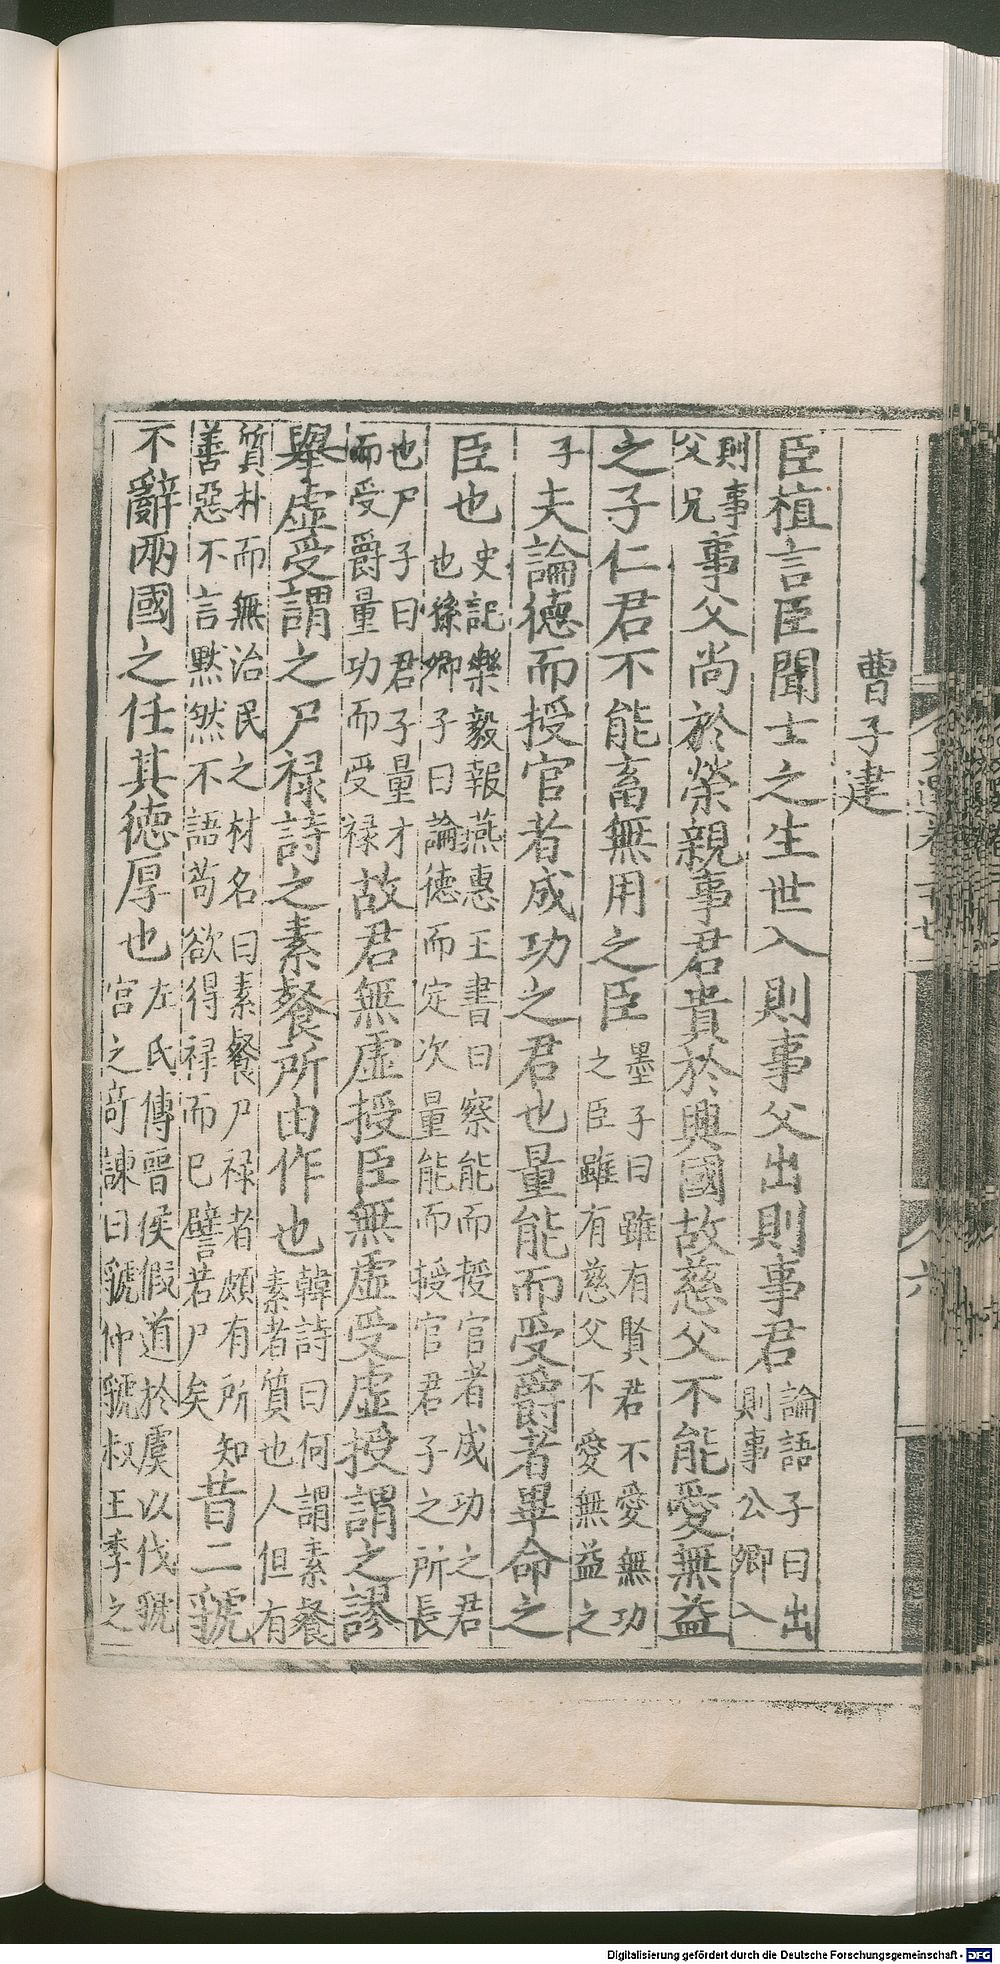 曹子建
臣植言臣聞士之生世入則事父出則事君論語子曰出則事公卿入
則事父兄事父尚於榮親事君貴於興國故慈父不能愛無益
之子仁君不能畜無用之臣墨子曰雖有賢君不愛無功之臣雖有慈父不愛無益之
子夫論德而授官者成功之君也量能而受爵者畢命之
臣也史記樂毅報燕惠王書曰察能而授官者成功之君也孫卿子曰論德而定次量能而授官君子之所長
也尸子曰君子量才而受爵量功而受祿故君無虛授臣無虛受虛授謂之謬
舉虛受謂之尸祿詩之素餐所由作也韓詩曰何謂素餐素者質也人但有
質朴而無治民之材名曰素餐尸祿者頗有所知善惡不言默然不語苟欲得祿而已譬若尸矣昔二虢
不辭兩國之任其德厚也左氏傳晉侯假道於虞以伐虢宮之奇諫曰虢仲虢叔王季之
六
Digitalisierung gefördert durch die Deutsche Forschungsgemeinschaft - DFG